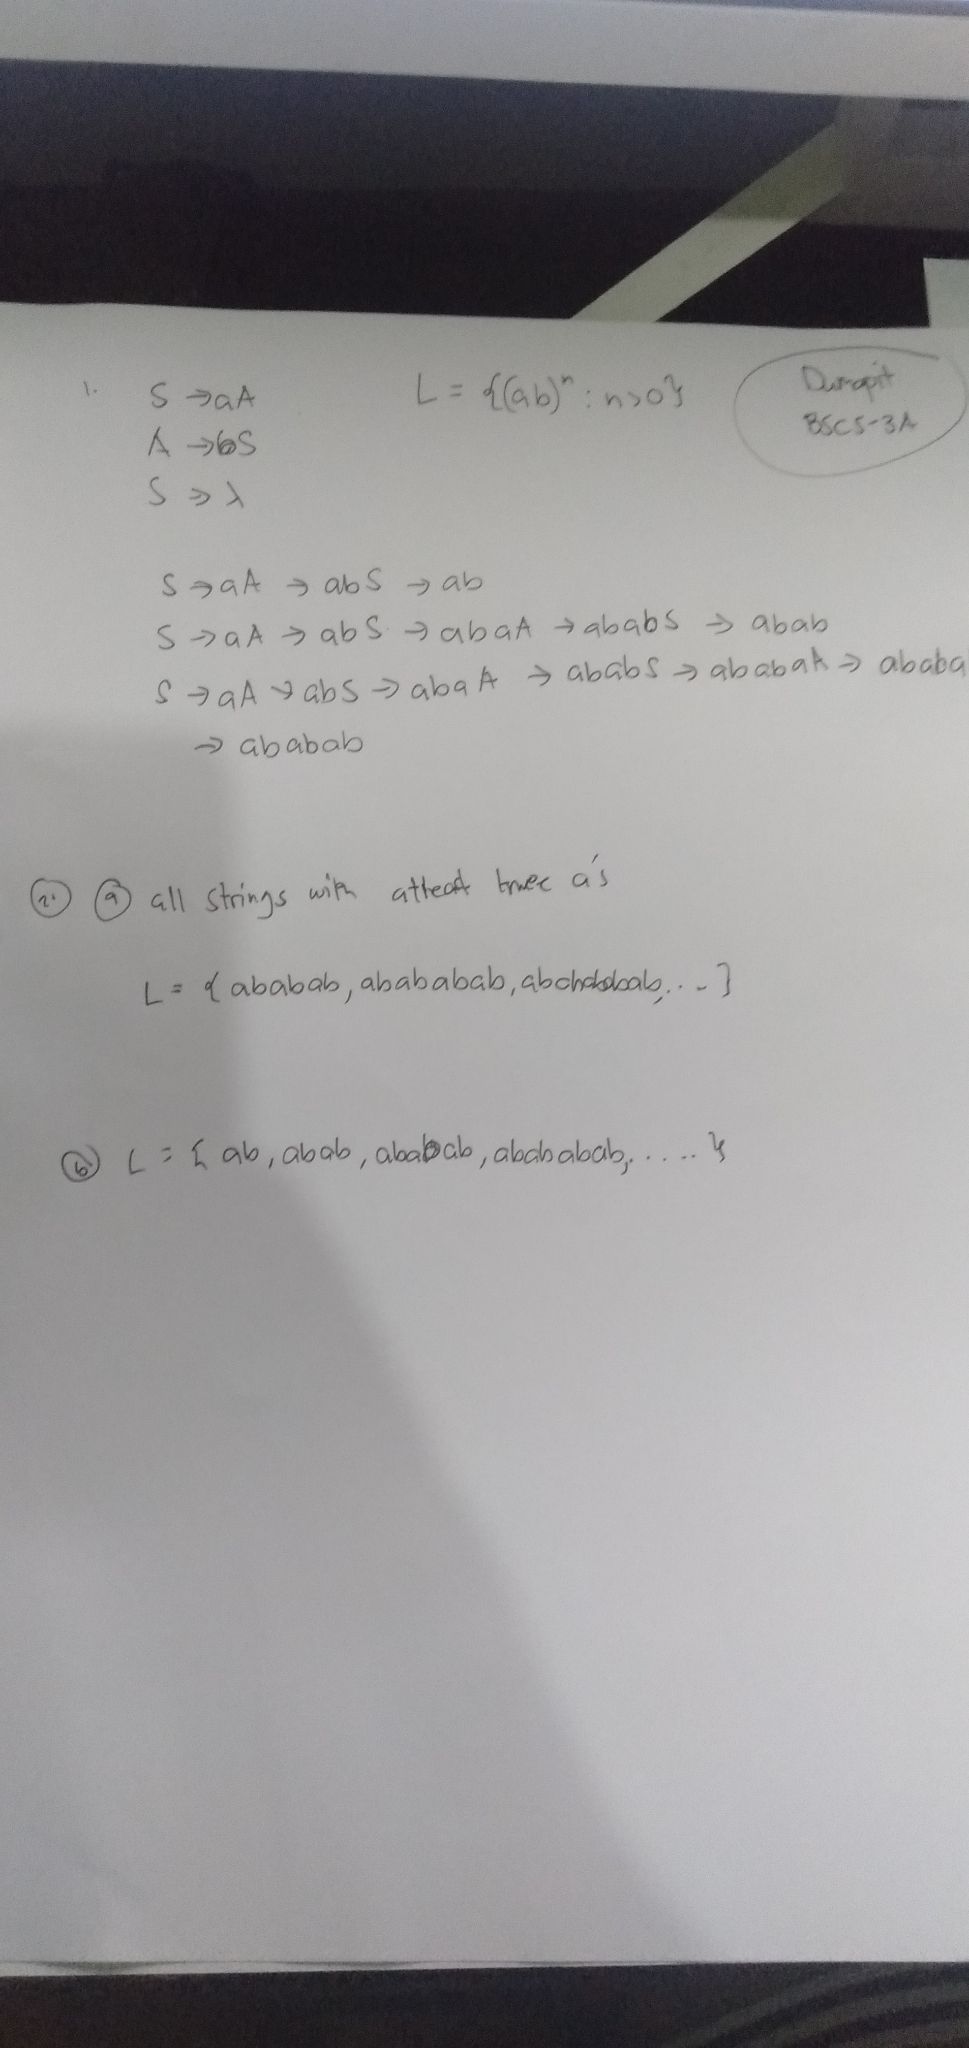 1. S → aA L = {(ab)ⁿ : n>0}
BSCS-3A
A → bS
S → λ
S → aA → abS → ab
S → aA → abS → abaA → ababS → abab
S → aA → abS → abaA → ababS → ababaA → ababa
→ ababab
2. a all strings with atleast three a's
L = { ababab, abababab, , ... }
b L = { ab, abab, ababab, abababab, ..... }